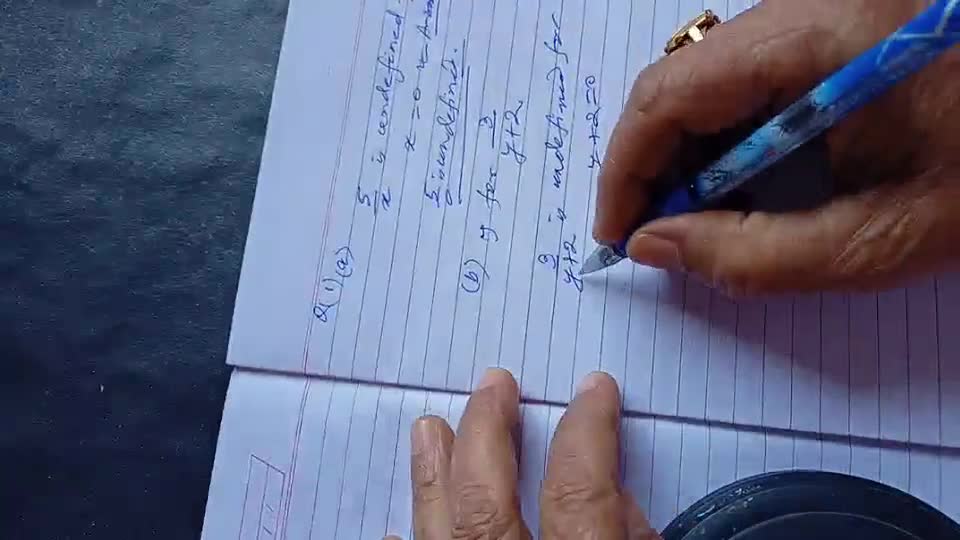 Q(1)(a) 5/x is undefined
x = 0
5/0 is undefined.
(b) y for 3/y+2
3/y+2 is undefined for
y+2=0